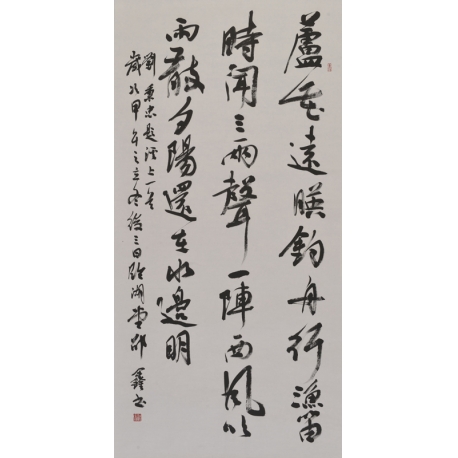 蘆花遠暎釣舟行漁笛
時聞三兩聲一陣西風吹
雨散夕陽還在水邊明
劉秉忠題溪上一首
歲次甲午之立冬後三日湖堂鑫書